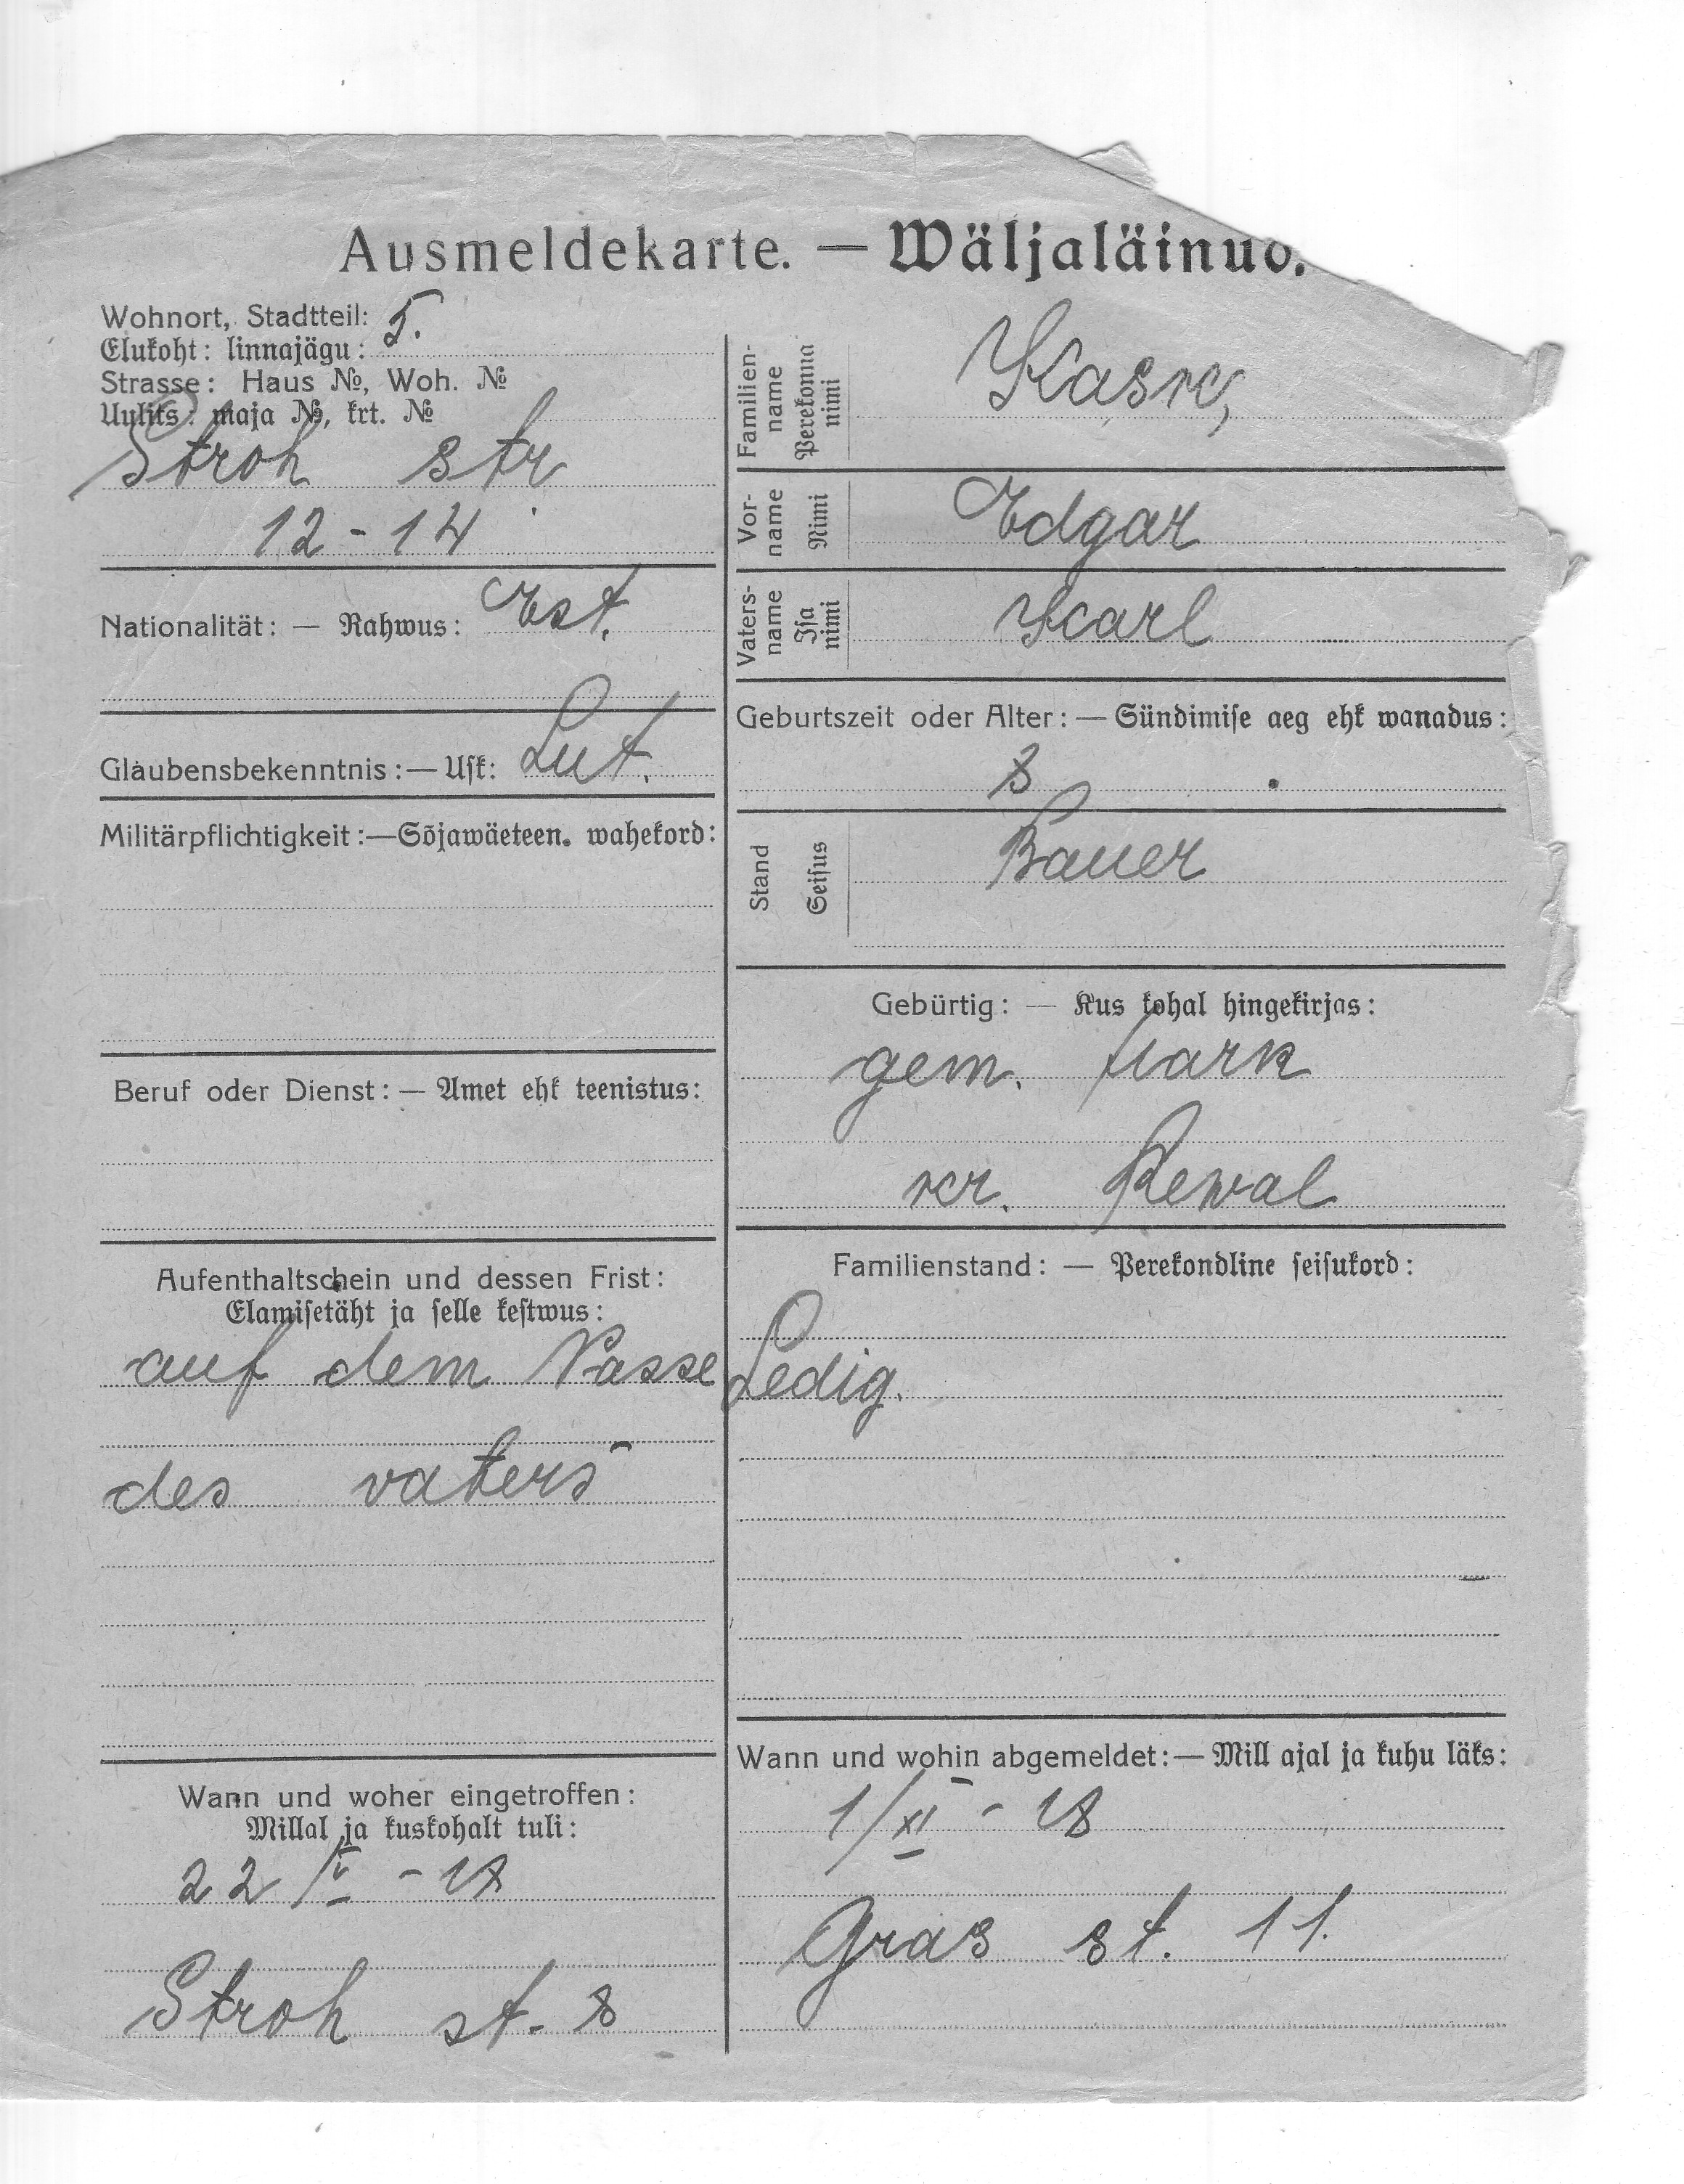 Ausmeldekarte. — Wäljaläinud.
Wohnort, Stadtteil: 5.
Elukoht: linnajägu:
Strasse: Haus №, Woh. №
Uulits: maja №, krt. №
Stroh str
12 - 14
Nationalität: — Rahwus: Est.
Glaubensbekenntnis: — Usk: Lut.
Militärpflichtigkeit: — Sõjawäeteen. wahekord:
Beruf oder Dienst: — Amet ehk teenistus:
Aufenthaltschein und dessen Frist:
Elamisetäht ja selle kestwus:
auf dem Passe
des vaters
Wann und woher eingetroffen:
Millal ja kuskohalt tuli:
22/V - 18
Stroh st. 8
Familien-
name
Perekonna
nimi
Kask
Vor-
name
Nimi
Edgar
Vaters-
name
Isa
nimi
Karl
Geburtszeit oder Alter: — Sündimise aeg ehk wanadus:
8
Stand
Seisus
Bauer
Gebürtig: — Kus kohal hingekirjas:
gem. Hark
kr. Rewal
Familienstand: — Perekondline seisukord:
Ledig.
Wann und wohin abgemeldet: — Mill ajal ja kuhu läks:
1/XI - 18
Gras st. 11.